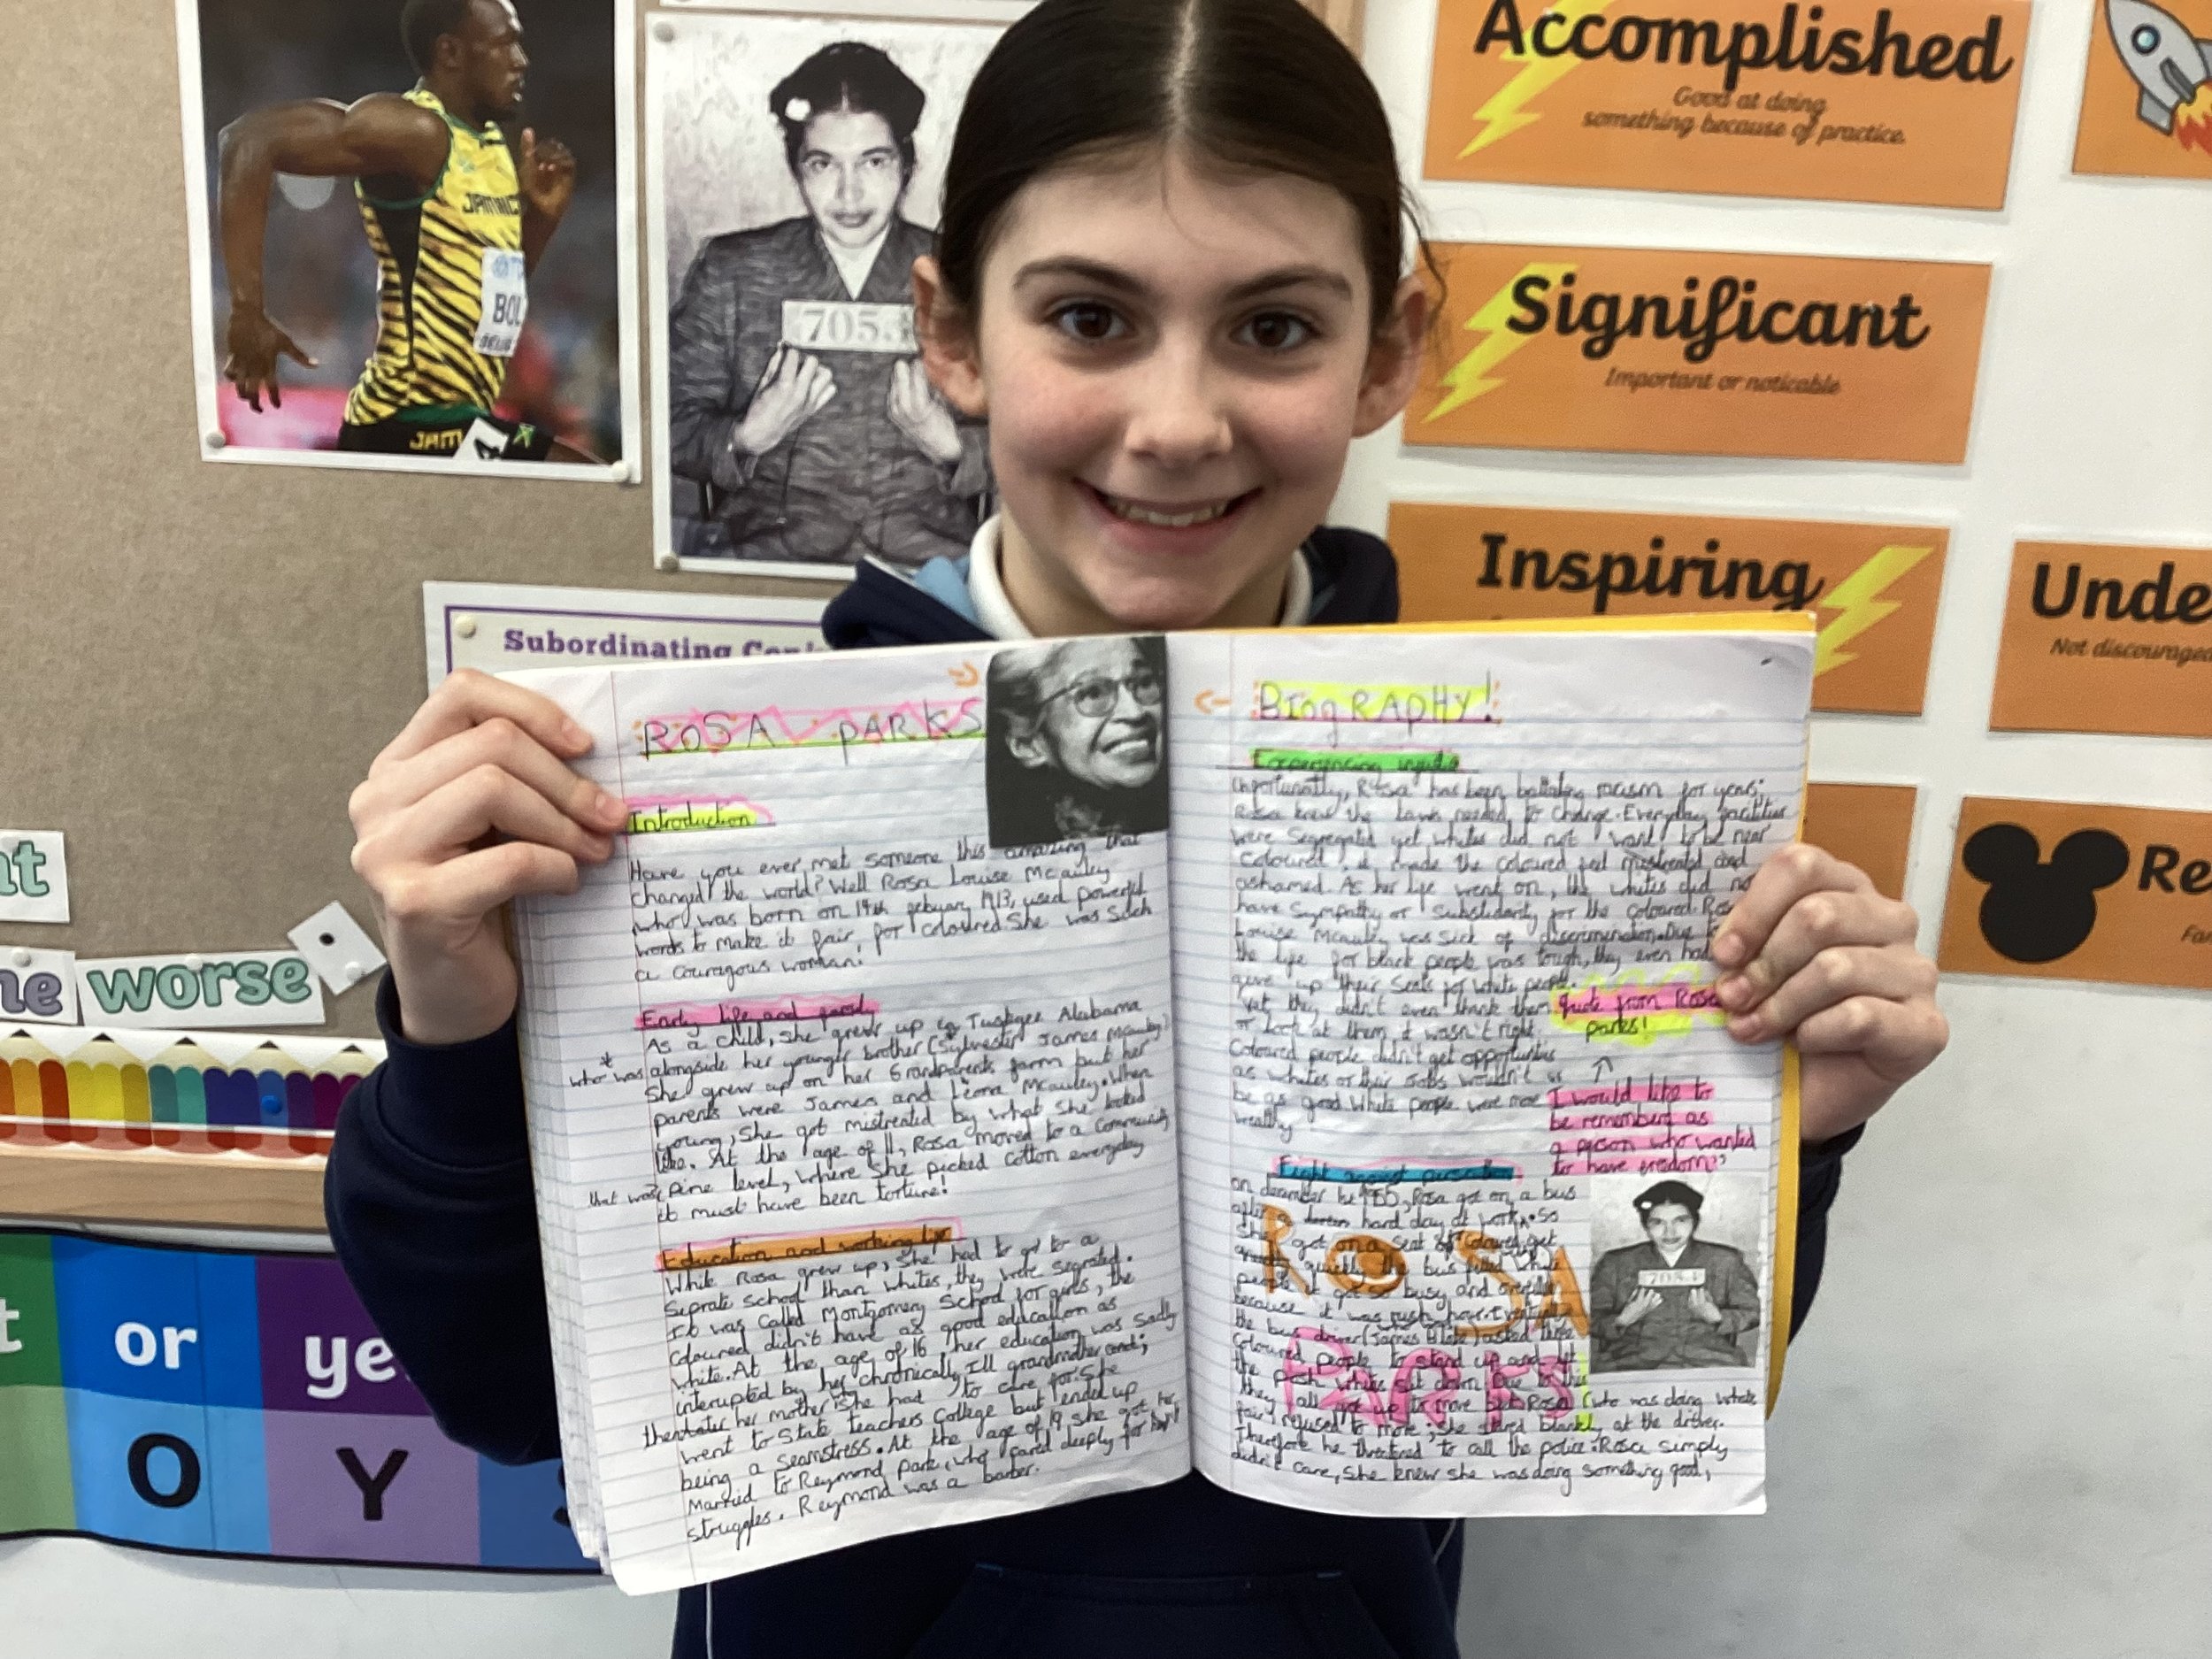 JAMAICA
BOL
JAM
705
Accomplished
Good at doing
something because of practice.
Significant
Important or noticable
Inspiring
Unde
Not discouraged
Re
Subordinating
worse
or
O
Y
ROSA PARKS
Introduction
Have you ever met someone this amazing that
changed the world? Well Rosa Louise Mcauley
who was born on 14th febuary 1913, used powerful
words to make it fair, for coloured. She was such
a couragous woman!
Early life and family
As a child, she grew up in Tuskgee Alabama
who was alongside her younger brother (Sylvester James Mcauley)
She grew up on her Grandparents farm but her
parents were James and Leona Mcauley. When
young, She got mistreated by what she looked
like. At the age of 11, Rosa moved to a community
that was pine level, where she picked cotton everyday
it must have been torture!
Education and working life
While Rosa grew up, She had to go to a
Seprate school than whites, they were segrated.
It was called Montgomery School for girls, the
coloured didn't have as good education as
white. At the age of 16, her education was sadly
interupted by her chronically Ill grandmother and;
then later her mother. She had to care for. She
went to State teachers College but ended up
being a seamstress. At the age of 19, she got
Married to Reymond Park, who cared deeply for
struggles. Reymond was a barber.
BIOGRAPHY!
Experiencing
Unfortunatly, Rosa has been battling racism for years;
Rosa knew the laws needed to change. Everyday facilities
were Segregated yet whites did not want to be near
Coloured! it made the coloured feel mistreated and
ashamed. As her life went on, the whites did no
have Sympathy or for the coloured. Ros
Louise Mcauley was sick of discrimination. Due to
the life for black people was tough, they even had
give up their Seats for white people.
Yet they didn't even thank them
or look at them it wasn't right.
Coloured people didn't get opportunities
as whites or their Jobs wouldn't
be as good. White people were more
wealthy
quote from Rosa
parks!
I would like to
be remembered as
a person who wanted
to have freedom"
Fight against
on december 1955, Rosa got on a bus
after a hard day at work. So
She got on a seat
quickly the bus filled white
people it got so busy and
because it was rush hour.
the bus driver (James Blake) asked
Coloured people to stand up and let
the posh whites sit down. Due to this
they all got up to move but Rosa (who was doing whats
fair) refused to move; she stared at the driver.
Therefore he threatned to call the police. Rosa simply
didn't care, She knew she was doing something good,
ROSA
PARKS